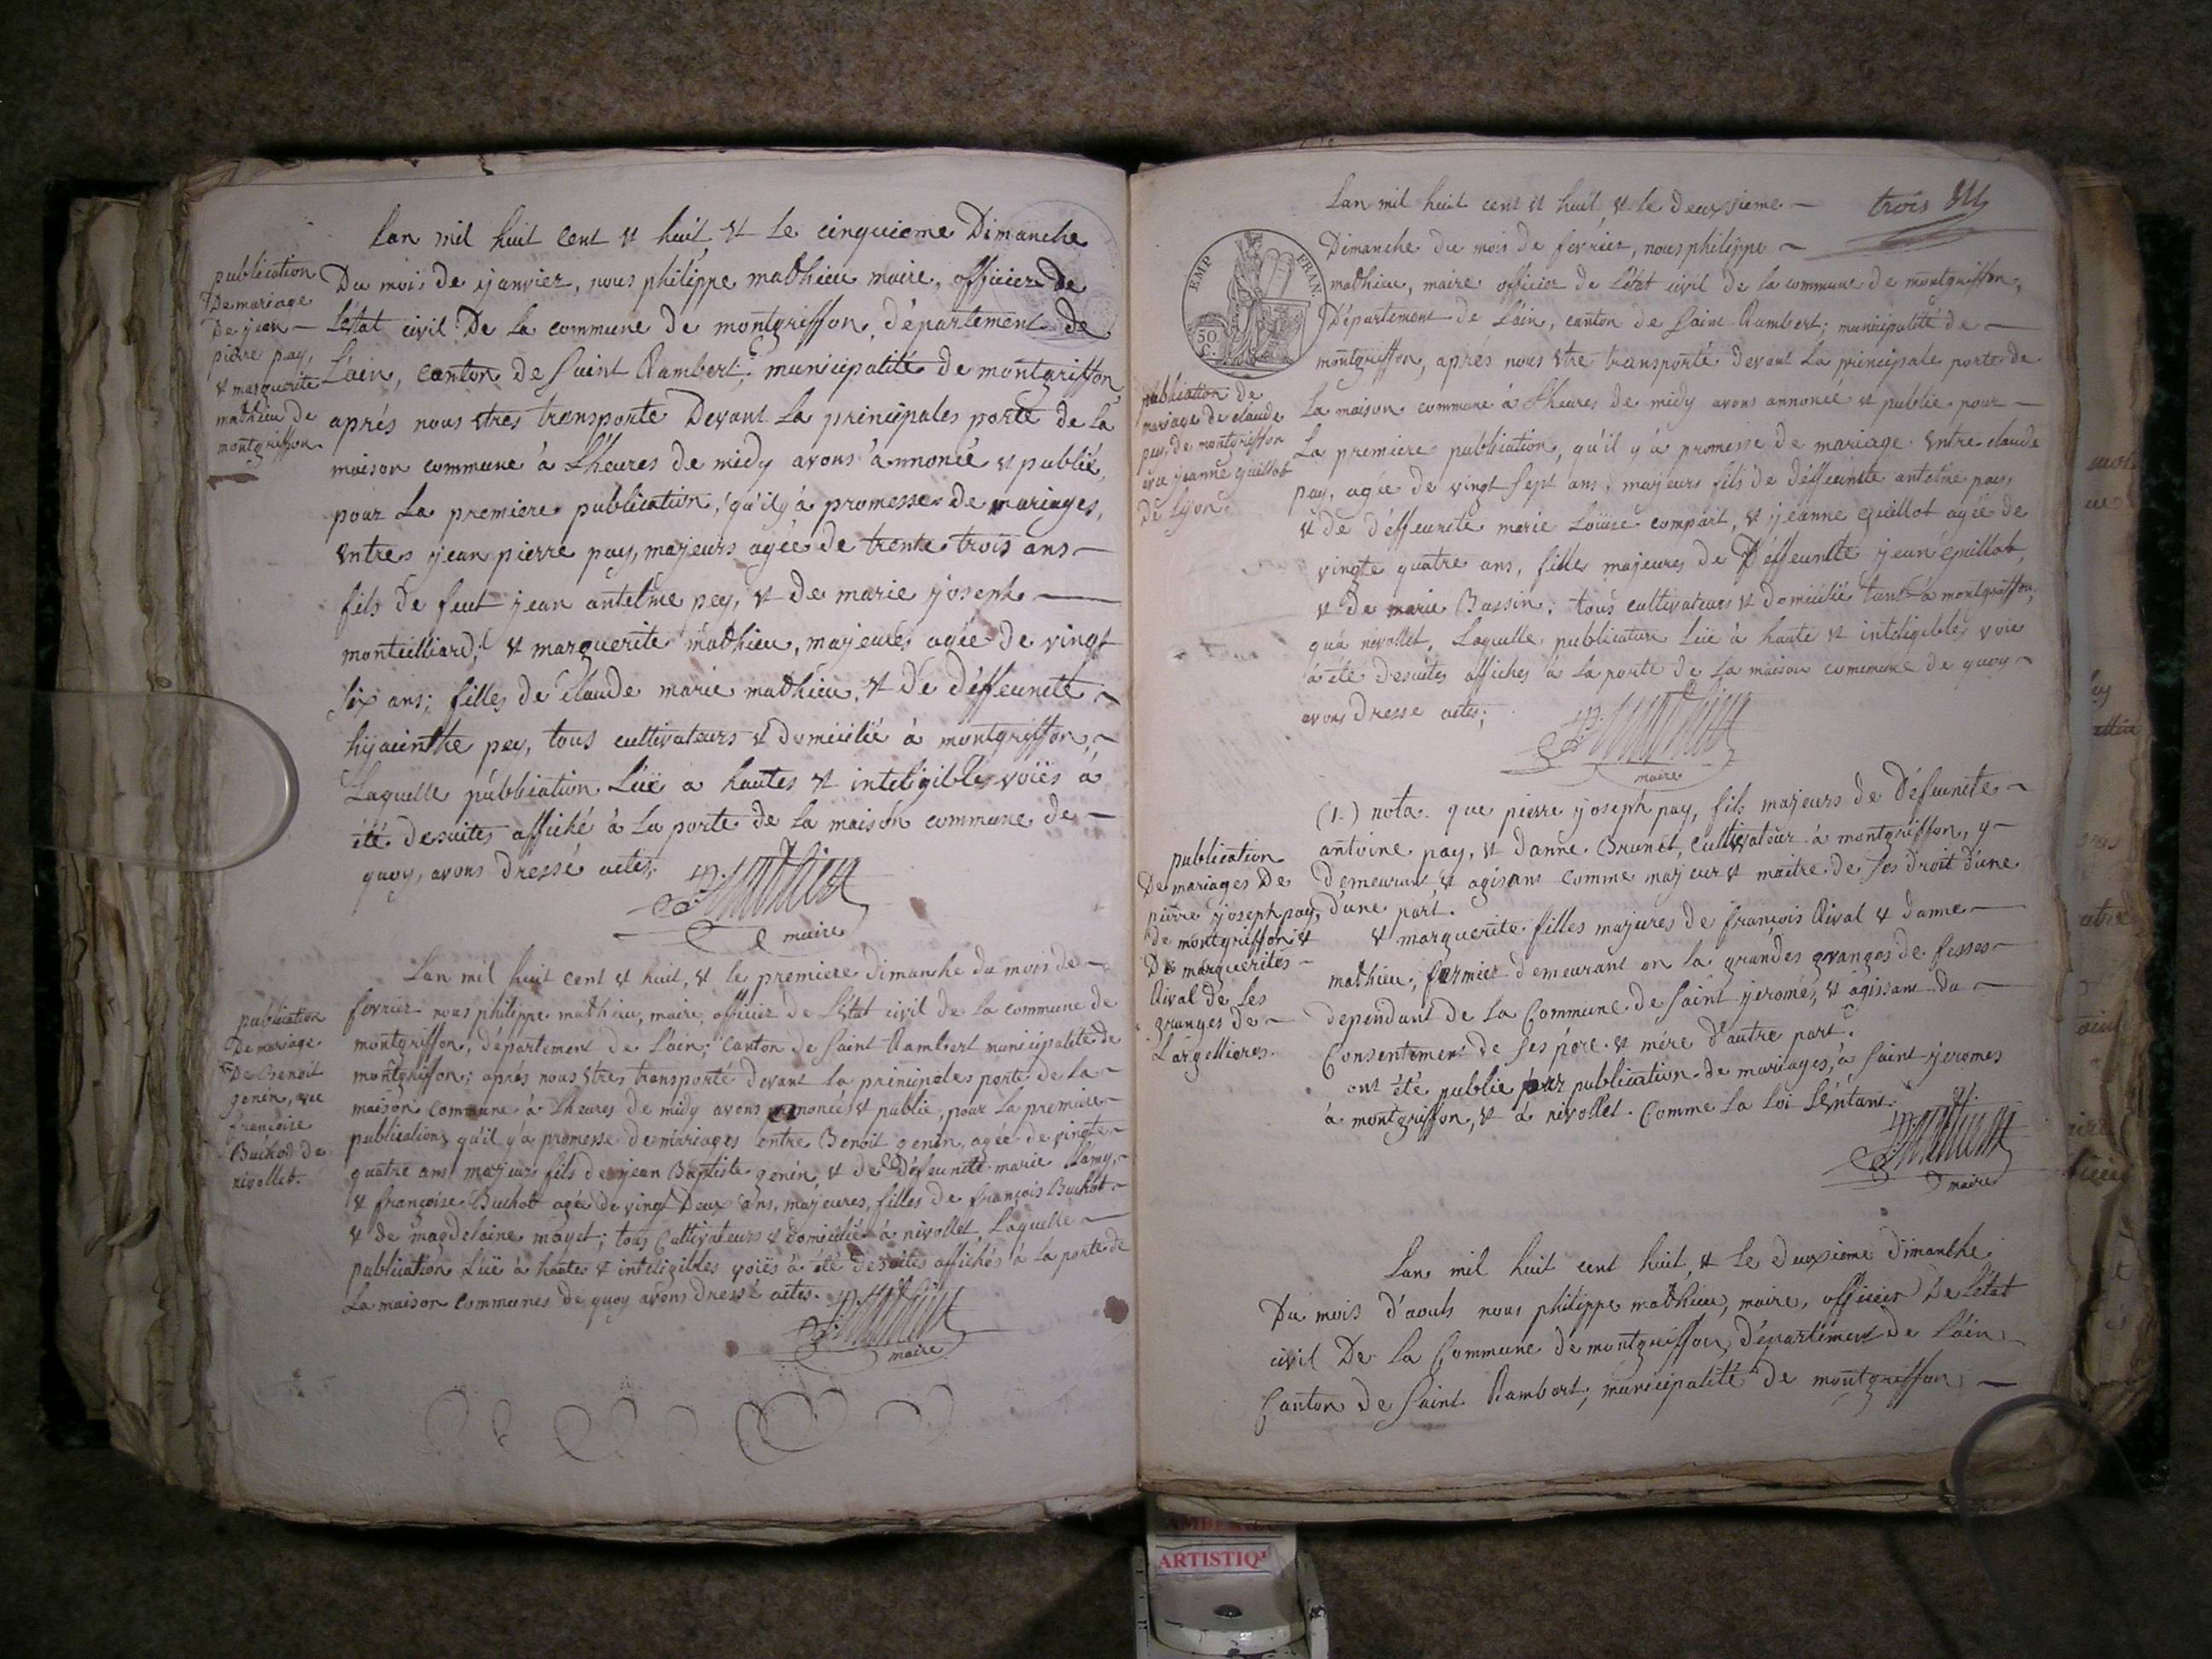 Lan mil huit cent & huit, & le cinquieme Dimanche
publication
De mariage
De jean —
pierre pay,
& marguerite
mathieu de
montgriffon
Du mois de janvier, nous philippe mathieu maire, officier de
L'état civil De la commune de montgriffon, département de
L'ain, canton de Saint Rambert; municipalité de montgriffon
aprés nous êtres transporté Devant La principales porte de La
maison commune à L'heures de midy avons annoncé & publié,
pour La premiere publication, qu'il y à promesse de mariages,
entres jean pierre pay, majeurs agée de trente trois ans —
fils de feut jean antelme pey, & de marie joseph —
montilliard; & marguerite mathieu, majeures agée de vingt
six ans; filles de claude marie mathieu, & de déffeuncte
hyacinthe pey, tous cultivateurs & domicilié à montgriffon, —
Laquelle publication Lüe a hautes & inteligibles voiës à
été desuites affiché à La porte de la maison commune de —
quoy, avons dressé actes;
P. Mathieu
maire
Lan mil huit cent & huit, & le premiere dimanche du mois de —
publication
De mariage
De Benoit
genin, avec
francoise
Buchod de
nivollet.
fevrier nous philippe mathieu, maire, officier de L'état civil de la commune de
montgriffon, département de L'ain; canton de Saint Rambert municipalité de
montgriffon; aprés nous êtres transporté devant la principales porte de la —
maison commune à L'heures de midy avons annoncé & publié, pour La premiere
publication, qu'il y'a promesse de mariages entre Benoit genin, agée de vingte
quatre ans majeurs fils de jean Baptiste genin, & de Défeuncte marie Lamy, —
& françoise Buchot agée de vingt Deux ans, majeures, filles de françois Buchot —
& de magdelaine mayet; tous Cultivateurs & domicilié à nivollet, Laquelle —
publication Lüe à hautes & inteligibles voiës à été desuites affichés à La porte de
La maison communes de quoy avons dressé actes.
P. Mathieu
maire
Lan mil huit cent & huit, & le deuxsieme —
trois
Dimanche du mois de fevrier, nous philippe —
EMP FRAN.
50 C.
mathieu, maire officier de L'état civil de la commune de montgriffon,
Département de L'ain, canton de Saint Rambert; municipalité de —
montgriffon, aprés nous être transporté devant La principale porte de
publication de
mariage de claude
pay, de montgriffon
avec jeanne guillot
de Lyon.
La maison commune à L'heures de midy avons annoncé & publié pour —
La premiere publication, qu'il y à promesse de mariage entre claude
pay, agée de vingt sept ans, majeurs fils de déffeuncte antelme pay,
& de déffeuncte marie Loüise compart, & jeanne guillot agée de
vingte quatre ans, filles majeures de Déffeuncte jean guillot,
& de marie Bassin; tous cultivateurs & domicilié tant à montgriffon,
qu'à nivollet, Laquelle publication Lüe à haute & inteligibles voie
à été desuites affichés à la porte de la maison commune de quoy —
avons dressé actes;
P. Mathieu
maire
(1.) nota. que pierre joseph pay, fils majeurs de Défeuncte —
publication
De mariages De
pierre joseph pay,
de montgriffon &
De marguerites —
Rival de Les
granges de —
Largellieres.
antoine pay, & danne Brunet, cultivateur à montgriffon, y —
demeurant, & agisant comme majeur & maitre de ses droit d'une
d'une part.
& marguerite filles majures de françois Rival & danne —
mathieu, fermier demeurant en la grandes granges de fesses —
dependant de la Commune de Saint jerome, & agissant du —
Consentement de ses pére & mére d'autre part.
ont été publie pour publication de mariages, à Saint jeromes
à montgriffon, & à nivollet. Comme la Loi L'éntant.
P. Mathieu
maire
Lan mil huit cent huit, & le deuxieme dimanche
Du mois d'aouts nous philippe mathieu, maire, officier De L'état
civil De La Commune de montgriffon, département de L'ain
Canton de Saint Rambert; municipalité de montgriffon, —
ARTISTIQ